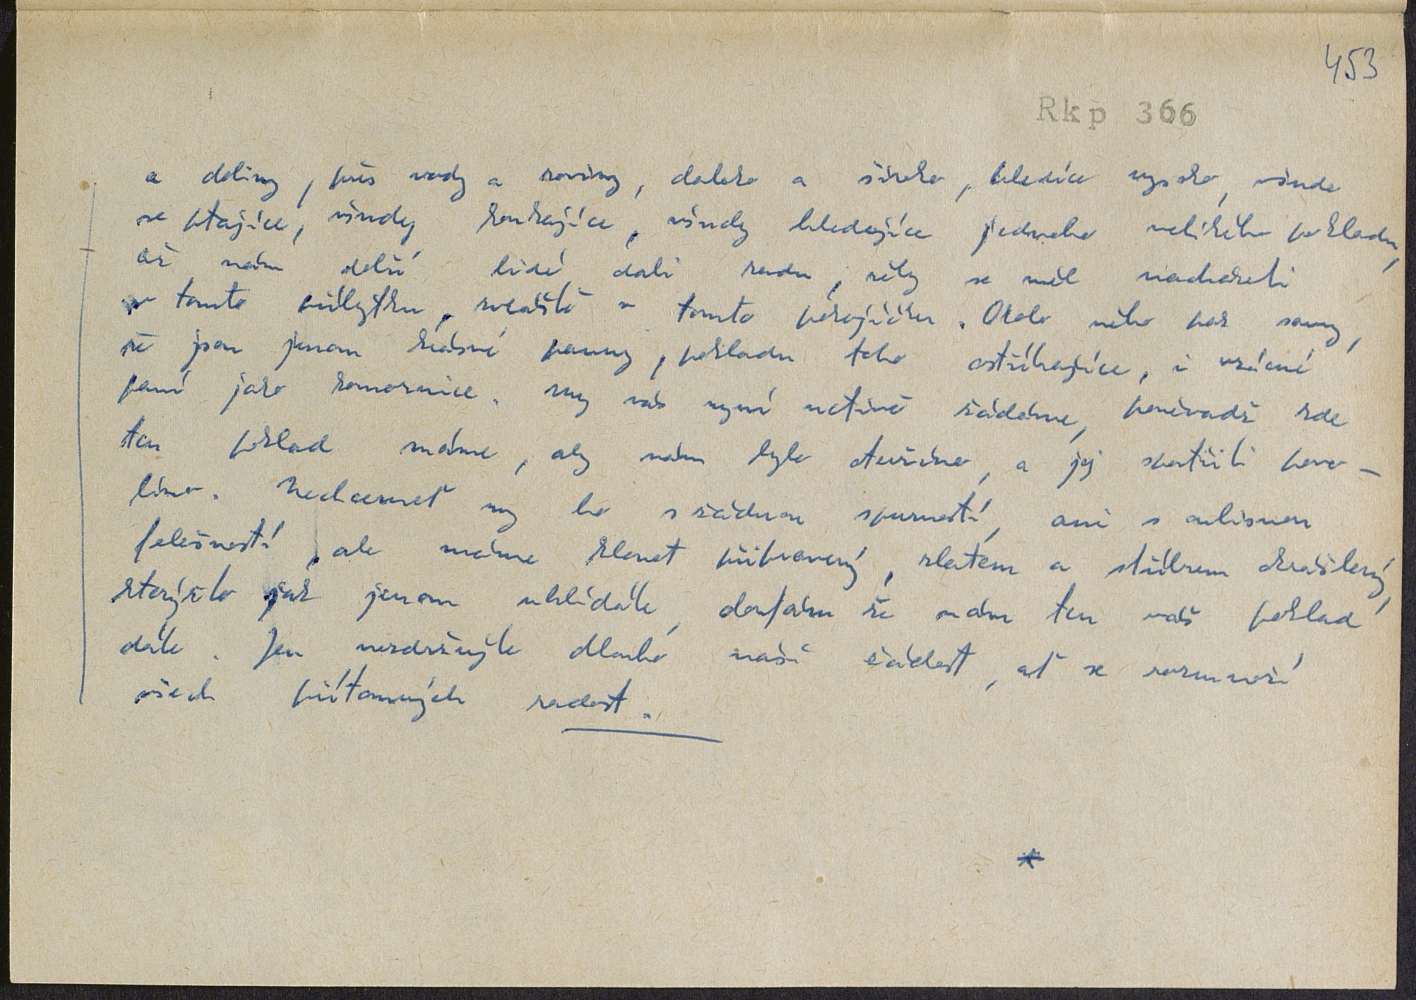 453
Rkp 366
a doliny, přes vody a roviny, daleko a široko, hledíce vysoko, všude
se ptajíce, všudy koukajíce, všudy hledajíce jednoho velikého pokladu,
až nám dobří lidé dali radu, žeby se měl nacházeti
v tomto příbytku, zvláště v tomto pokojíčku. Okolo něho pak samy,
že jsou jenom krásné panny, pokladu toho ostříhajíce, i vzácné
paní jako komornice. My vás nyní uctivě žádáme, poněvadž zde
ten poklad máme, aby nám bylo otevříno, a jej spatřiti povo-
líno. Nechcemeť my ho s žádnou spurností, ani s
falešností, ale máme klenot připravený, zlatem a stříbrem okrášlený,
kterýžto jak jenom uhlídáte, doufám že nám ten váš poklad
dáte. Jen nezdržujte dlouho naši žádost, ať se rozmnoží
všech přítomných radost.
*